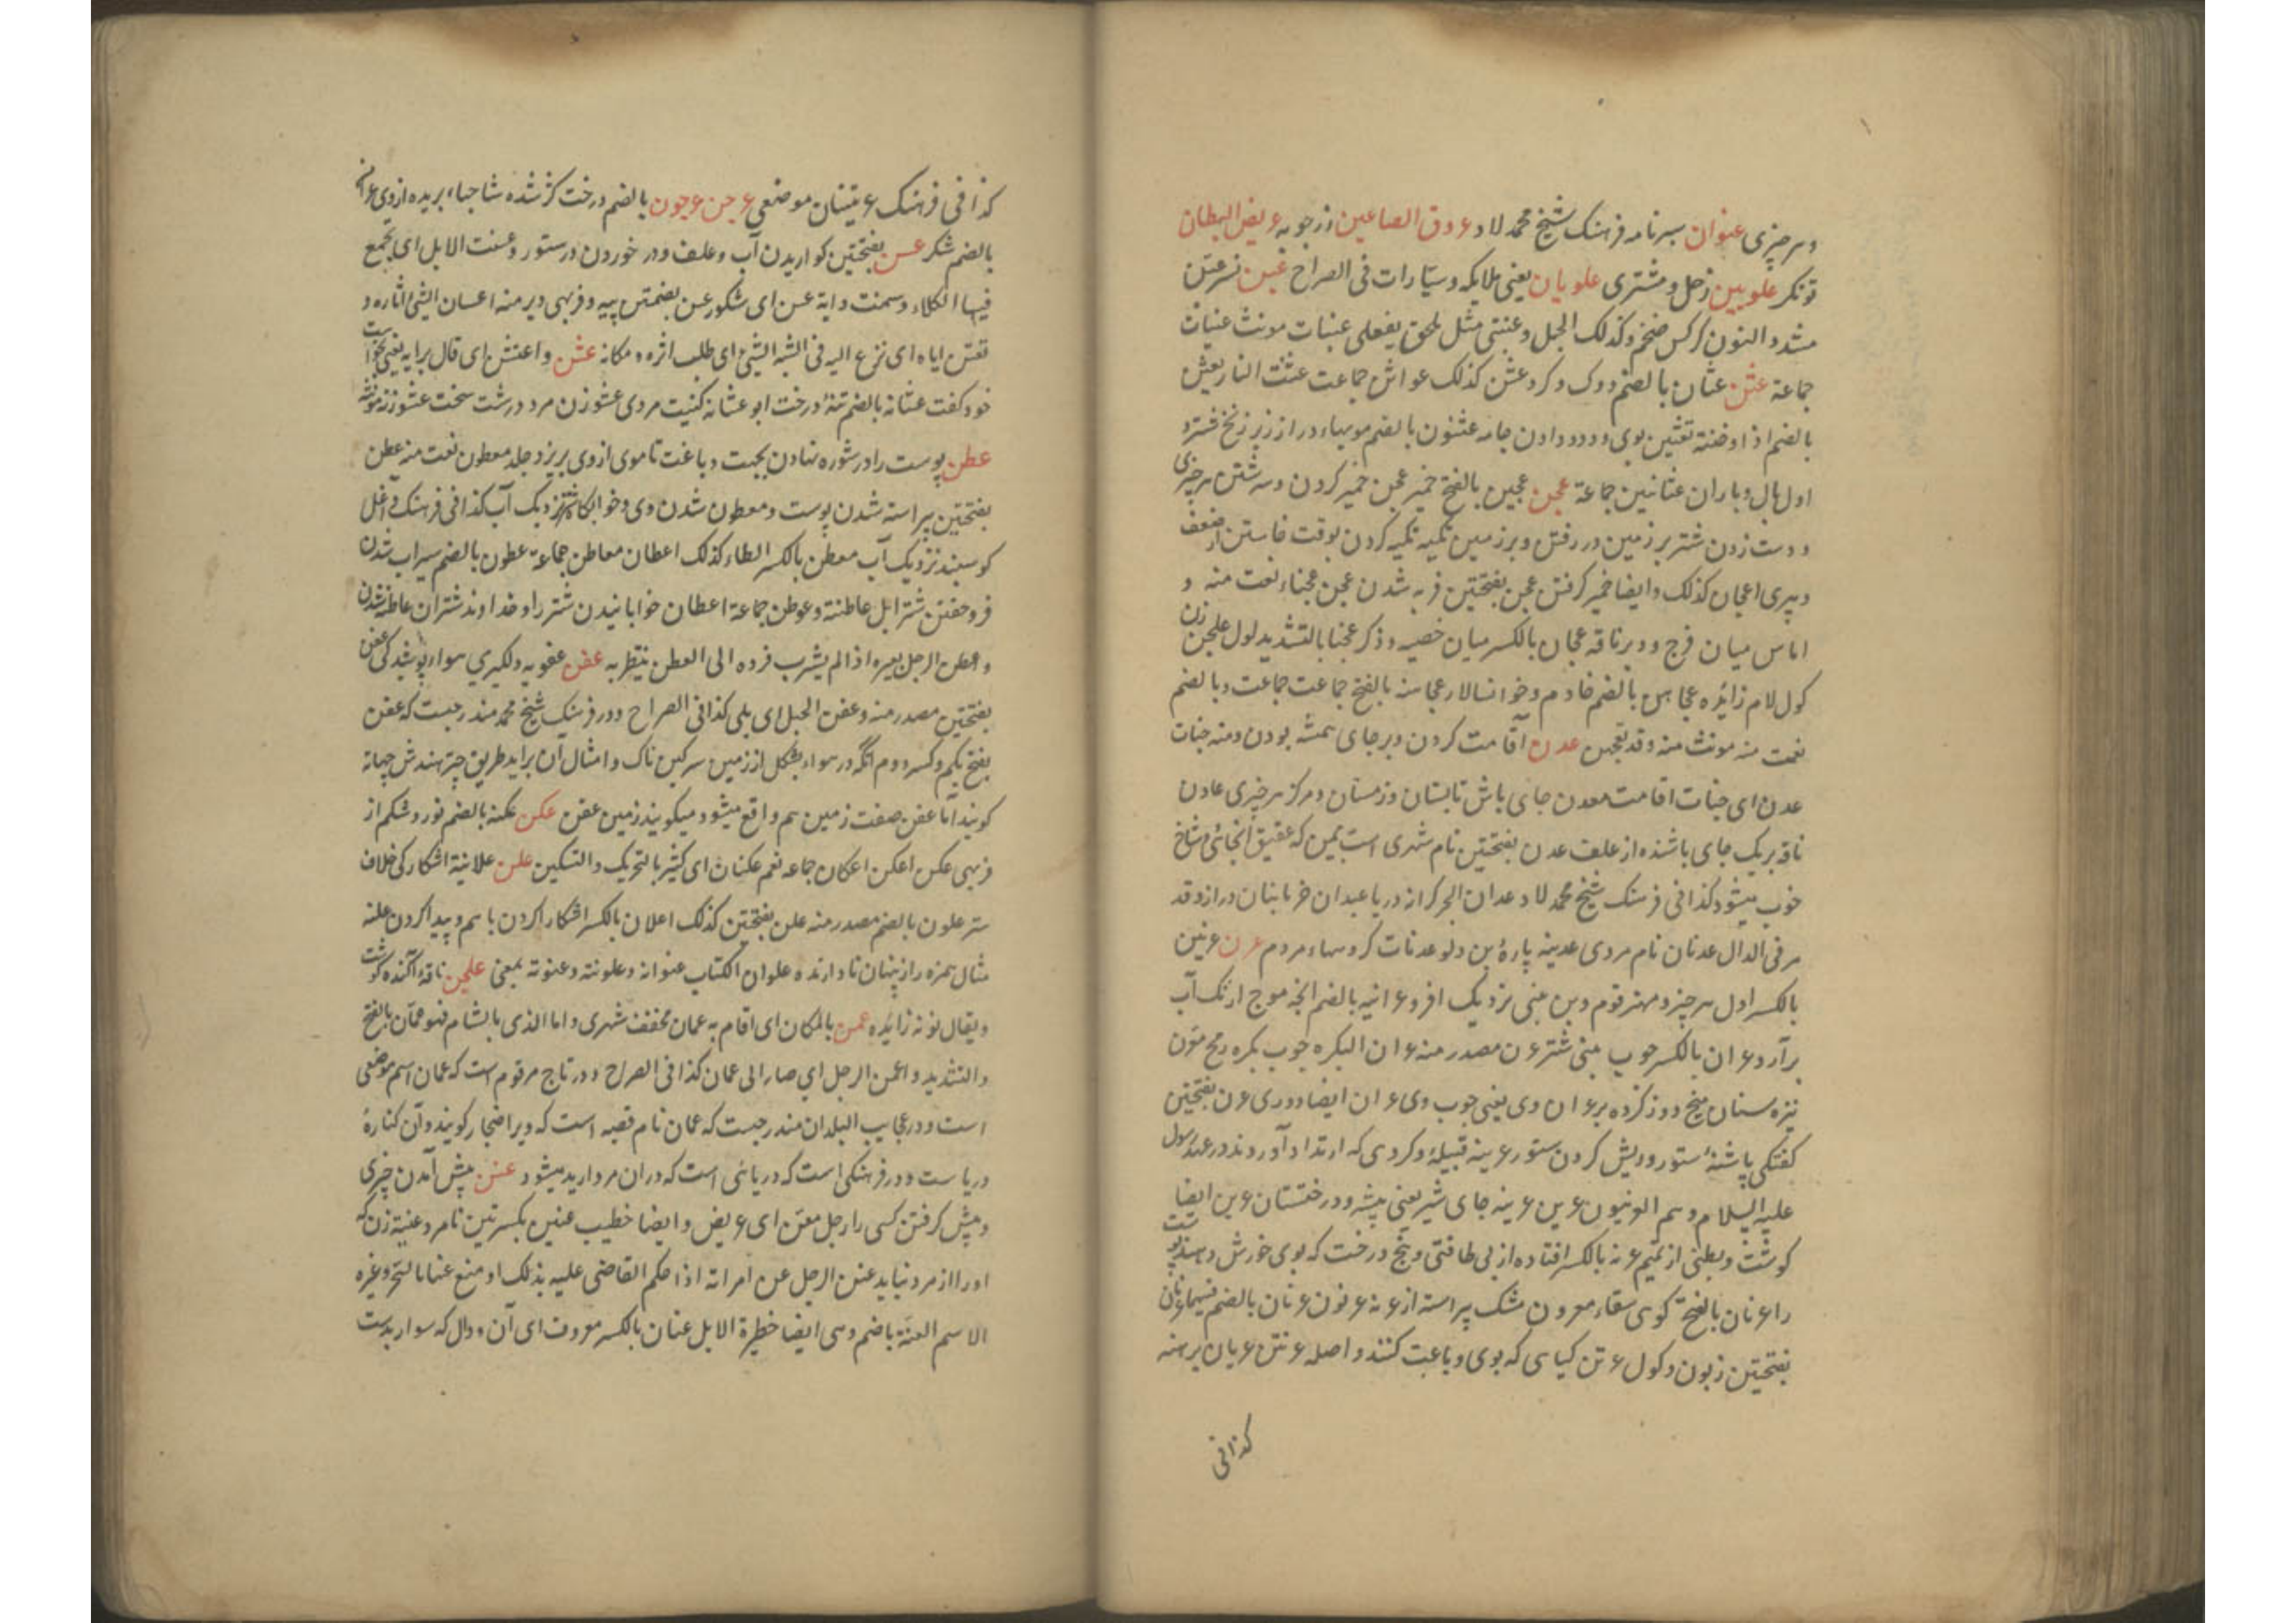 و سر چیزی عنوان سرنامه فرهنک شیخ محمد لاد عروق الصاعین زرجوبه عریض البطان
تونکر علویین زحل و مشتری علویان یعنی ملایکه و سیّارات فی الصراح عبن نسر عبنّ
مشدد النون کرکس ضخم وکذلک الجمل وعبنی مثل ملحق بفعلی عبنات مونث عبنیات
جماعة عثن عثان بالضم دوک و کرد عثن کذلک عواثن جماعت عثنت النار یعثن
بالضم اذا دخنة تعثین بوی ودود دادن جامه عثنون بالضم مویهاء دراز زیر زنخ شتر و
اول بال و باران عثانین جماعة عجن عجین بالفتح خمیر عجن خمیر کردن و سرشتن هر چیزی
و دست زدن شتر بر زمین در رفتن و بر زمین تکیه کردن بوقت خاستن از ضعف
و پیری اعجان کذلک و ایضا خمیر کرفتن عجن بفتحتین فربه شدن عجن عجناء نعت منه و
اماس میان فرج و دبر ناقه عجان بالکسر میان خصیه و ذکر عجنا بالتشدید لول علجن زن
کول لام زایده عجاهن بالضم خادم و خوانسالار عجاهنه بالفتح جماعت جماعت و بالضم
نعت منه مونث منه وقد تعجهن عدن اقامت کردن و بر جای همیشه بودن ومنه جنات
عدن ای جنات اقامت معدن جای باش تابستان و زمستان و مرکز هر چیزی عادن
ناقه بریک جای باشنده از علف عدن بفتحتین نام شهری است بیمن که عقیق آنجائی و شاخ
خوب میشود کذا فی فرهنک شیخ محمد لاد عدان البحر کرانه دریا عیدان خرمابنان دراز وقد
مر فی الدال عدنان نام مردی عدینه پارۀ بن دلو عدنات کروهاء مردم عرن عرنین
بالکسر اول هر چیز و مهتر قوم و بن بینی نزدیک ابرو عرانیه بالضم انچه موج از تک آب
برآرد عران بالکسر چوب بینی شتر عرن مصدر منه عران البکره چوب بکره رمح معرّن
نیزه سنان میخ دوز کرده بر عران وی یعنی چوب وی عران ایضا دوری عرن بفتحتین
کفتکی پاشنۀ ستور وریش کردن ستور عرینه قبیلۀ و کروهی که ارتداد آوردند در عهد رسول
علیه السلام وهم العرنیون عرین عرینه جای شیر یعنی بیشه و درختستان عرین ایضا
کوشت و بطنی از تمیم عرنه بالکسر افتاده از بی طاقتی و بیخ درخت که بوی خورش دهند پوست
را عرنان بالفتح کوهی سقاء معرون مشک پیراسته از عرنه عرفون عرنان بالضم
بفتحتین زبون و کول عرتن کیاهی که بوی دباغت کنند و اصله عرنتن عریان برهنه
کذا فی
کذا فی فرهنک عرتنسان موضعی عرجن عرجون بالضم درخت کژ شده شاخهاء بریده از وی
بالضم شکر عسن بفتحتین کواریدن آب و علف و در خوردن در ستور وعسنت الابل ای تجمع
فیها الکلاء وسمنت دابة عسن ای شکور عسن بضمتین پیه و فربهی دیرمنه اعسان الشئ اثاره و
تعسّن اباه ای نزع الیه فی الشبه الشئ ای طلب اثره ومکانه عشن واعتشن ای قال برایه یعنی بخواست
خود کفت عشانه بالضم تنۀ درخت ابو عشانه کنیت مردی عشوزن مرد درشت سخت عشوزنه مونثه
عطن پوست را در شوره نهادن بجهت دباغت تا موی از وی بریزد جلد معطون نعت منه عطن
بفتحتین پیراسته شدن پوست و معطون شدن وی و خوابگاه شتر نزدیک آب کذا فی فرهنک آغل
کوسفند نزدیک آب معطن بالکسر الطاء کذلک اعطان معاطن جماعة عطون بالضم سیراب شدن
فروخفتن شتر ابل عاطنة وعوطن جماعة اعطان خوابانیدن شتر را وخداوند شتران عاطنه شدن
واعطن الرجل بعیره اذا لم یشرب فرده الی العطن ینتظر به عفن عفونه دلکیری هوا و پوشیدکی عفن
بفتحتین مصدر منه وعفن الحبل ای بلی کذا فی الصراح و در فرهنک شیخ محمد مندرجست که عفن
بفتح یکم و کسر دوم آنکه در هوا بشکل از زمین سرکین ناک و امثال آن براید طریق چتر هندش چهاته
کویند امّا عفن صفت زمین هم واقع میشود میکویند زمین عفن عکن عکنه بالضم نورد شکم از
فربهی عکن اعکن اعکان جماعه نعم عکنان ای کثیر بالتحریک و التسکین علن علانیة اشکارکی خلاف
سر علون بالضم مصدر منه علن بفتحتین کذلک اعلان بالکسر اشکارا کردن باسم و پیدا کردن علنه
مثال همزه راز پنهان نادارنده علوان الکتاب عنوانه وعلونته وعنونته بمعنی علجن ناقۀ آکنده کوشت
ویقال نونه زایده عمن بالمکان ای اقام به عمان مخفف شهری و اما الذی بالشام فهو عمّان بالفتح
والتشدید واعمن الرجل ای صار الی عمان کذا فی الصراح و در تاج مرقوم است که عمان اسم موضعی
است و در عجایب البلدان مندرجست که عمان نام قصبه است که ویرا ضجار کویند و آن کنارۀ
دریاست و در فرهنکی است که دریائی است که در ان مروارید میشود عنن پیش آمدن چیزی
و پیش کرفتن کسی را رجل معنّ ای عریض وایضا خطیب عنین بکسرتین نامرد عنینة زن که
اورا از مرد نباید عنن الرجل عن امراته اذا حکم القاضی علیه بذلک او منع عنها بالسحر وغیره
الاسم العنّة باضم وهی ایضا حظیرة الابل عنان بالکسر معروف ای آن دوال که سوار بدست